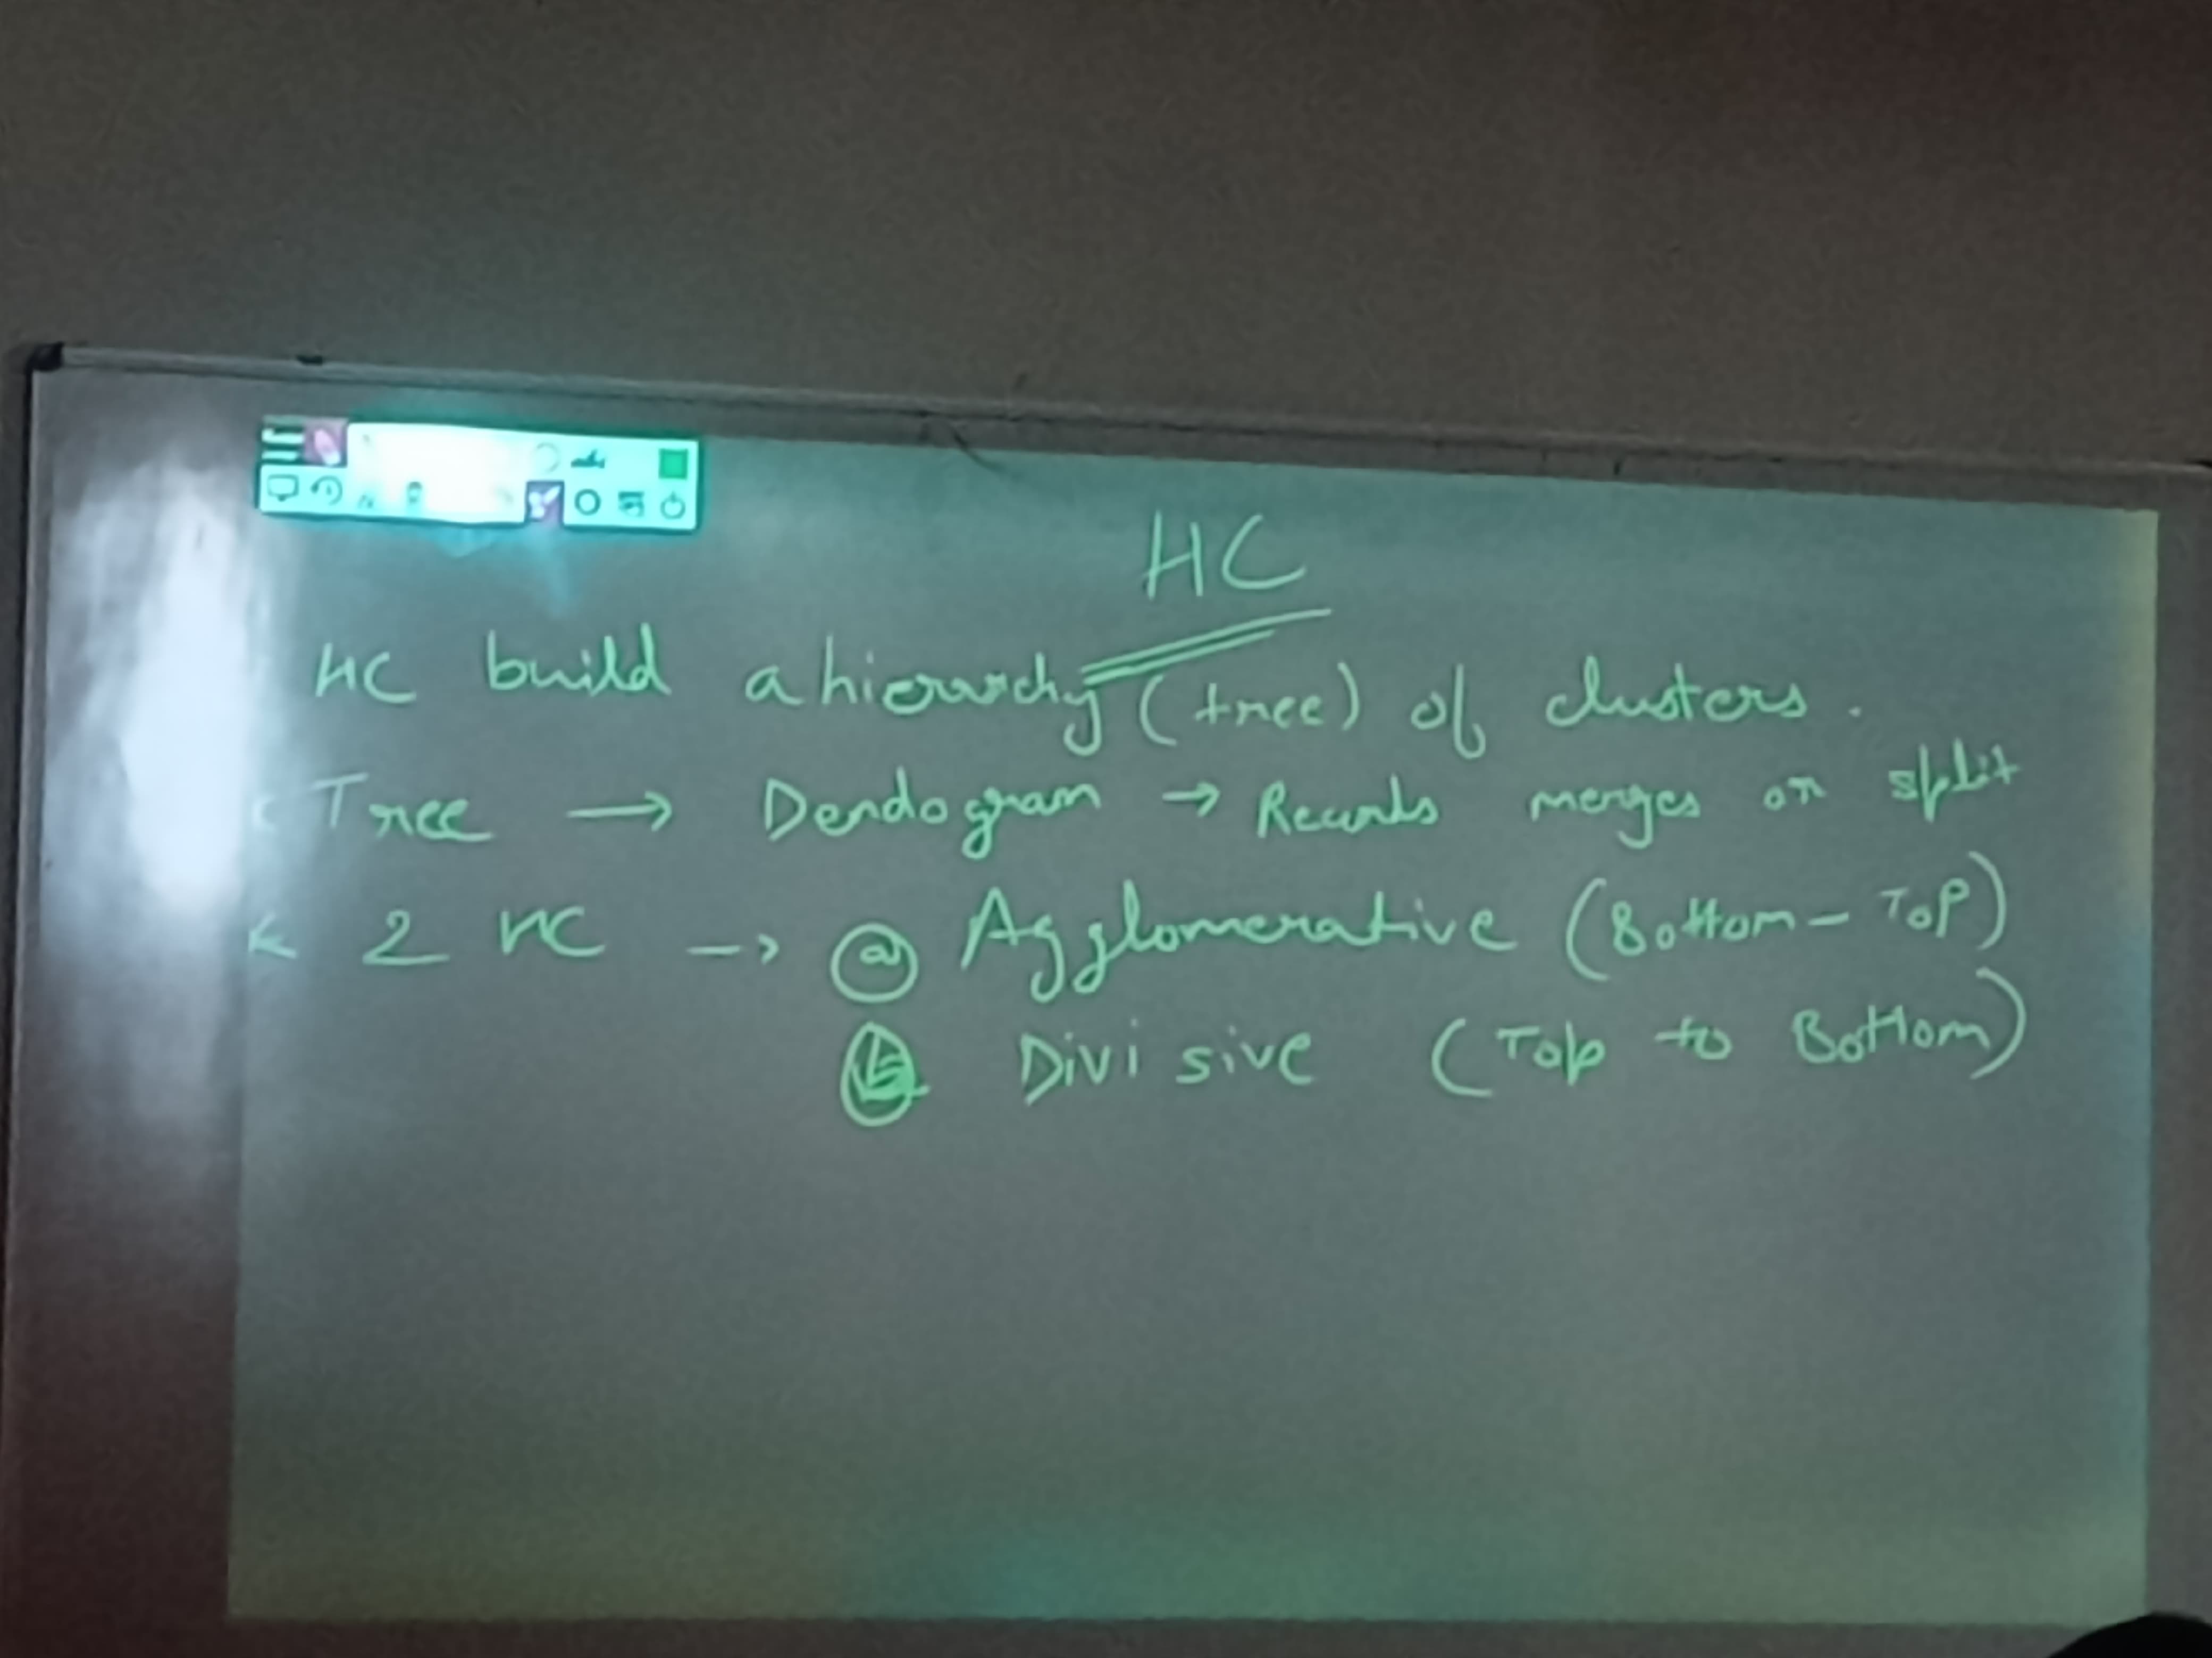 HC
HC build a hierarchy (tree) of clusters.
Tree → Dendogram → Records merges or split
2 HC → ⓐ Agglomerative (Bottom - Top)
ⓑ Divisive (Top to Bottom)